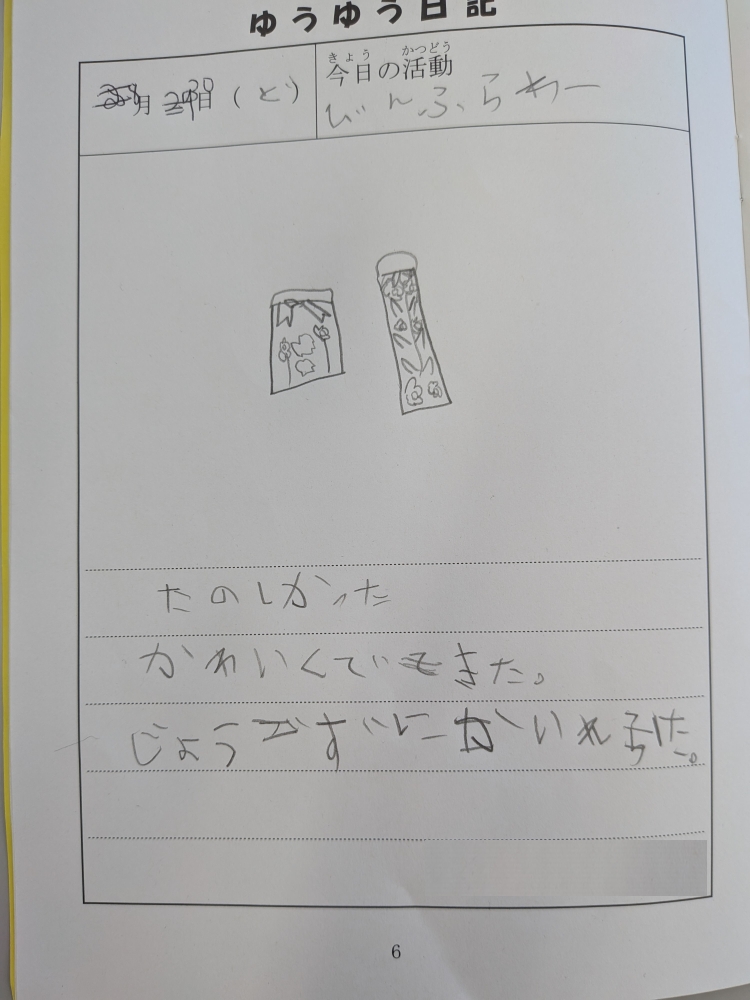 ゆうゆう日記
月 30日 (ど)
きょう かつどう
今日の活動
びんふらわー
たのしかった
かわいくできた。
じょうずに
6